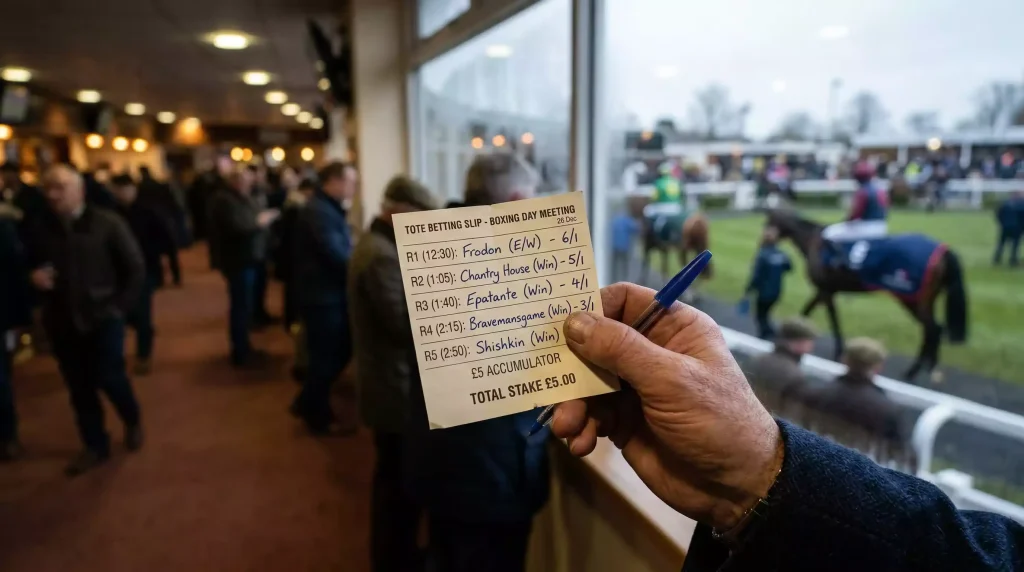 TOTE BETTING SLIP - BOXING DAY MEETING
26 Dec
R1 (12:30): Frodon (E/W) - 6/1
R2 (1:05): Chantry House (Win) - 5/1
R3 (1:40): Epatante (Win) - 4/1
R4 (2:15): Bravemansgame (Win) - 3/1
R5 (2:50): Shishkin (Win)
£5 ACCUMULATOR
TOTAL STAKE £5.00